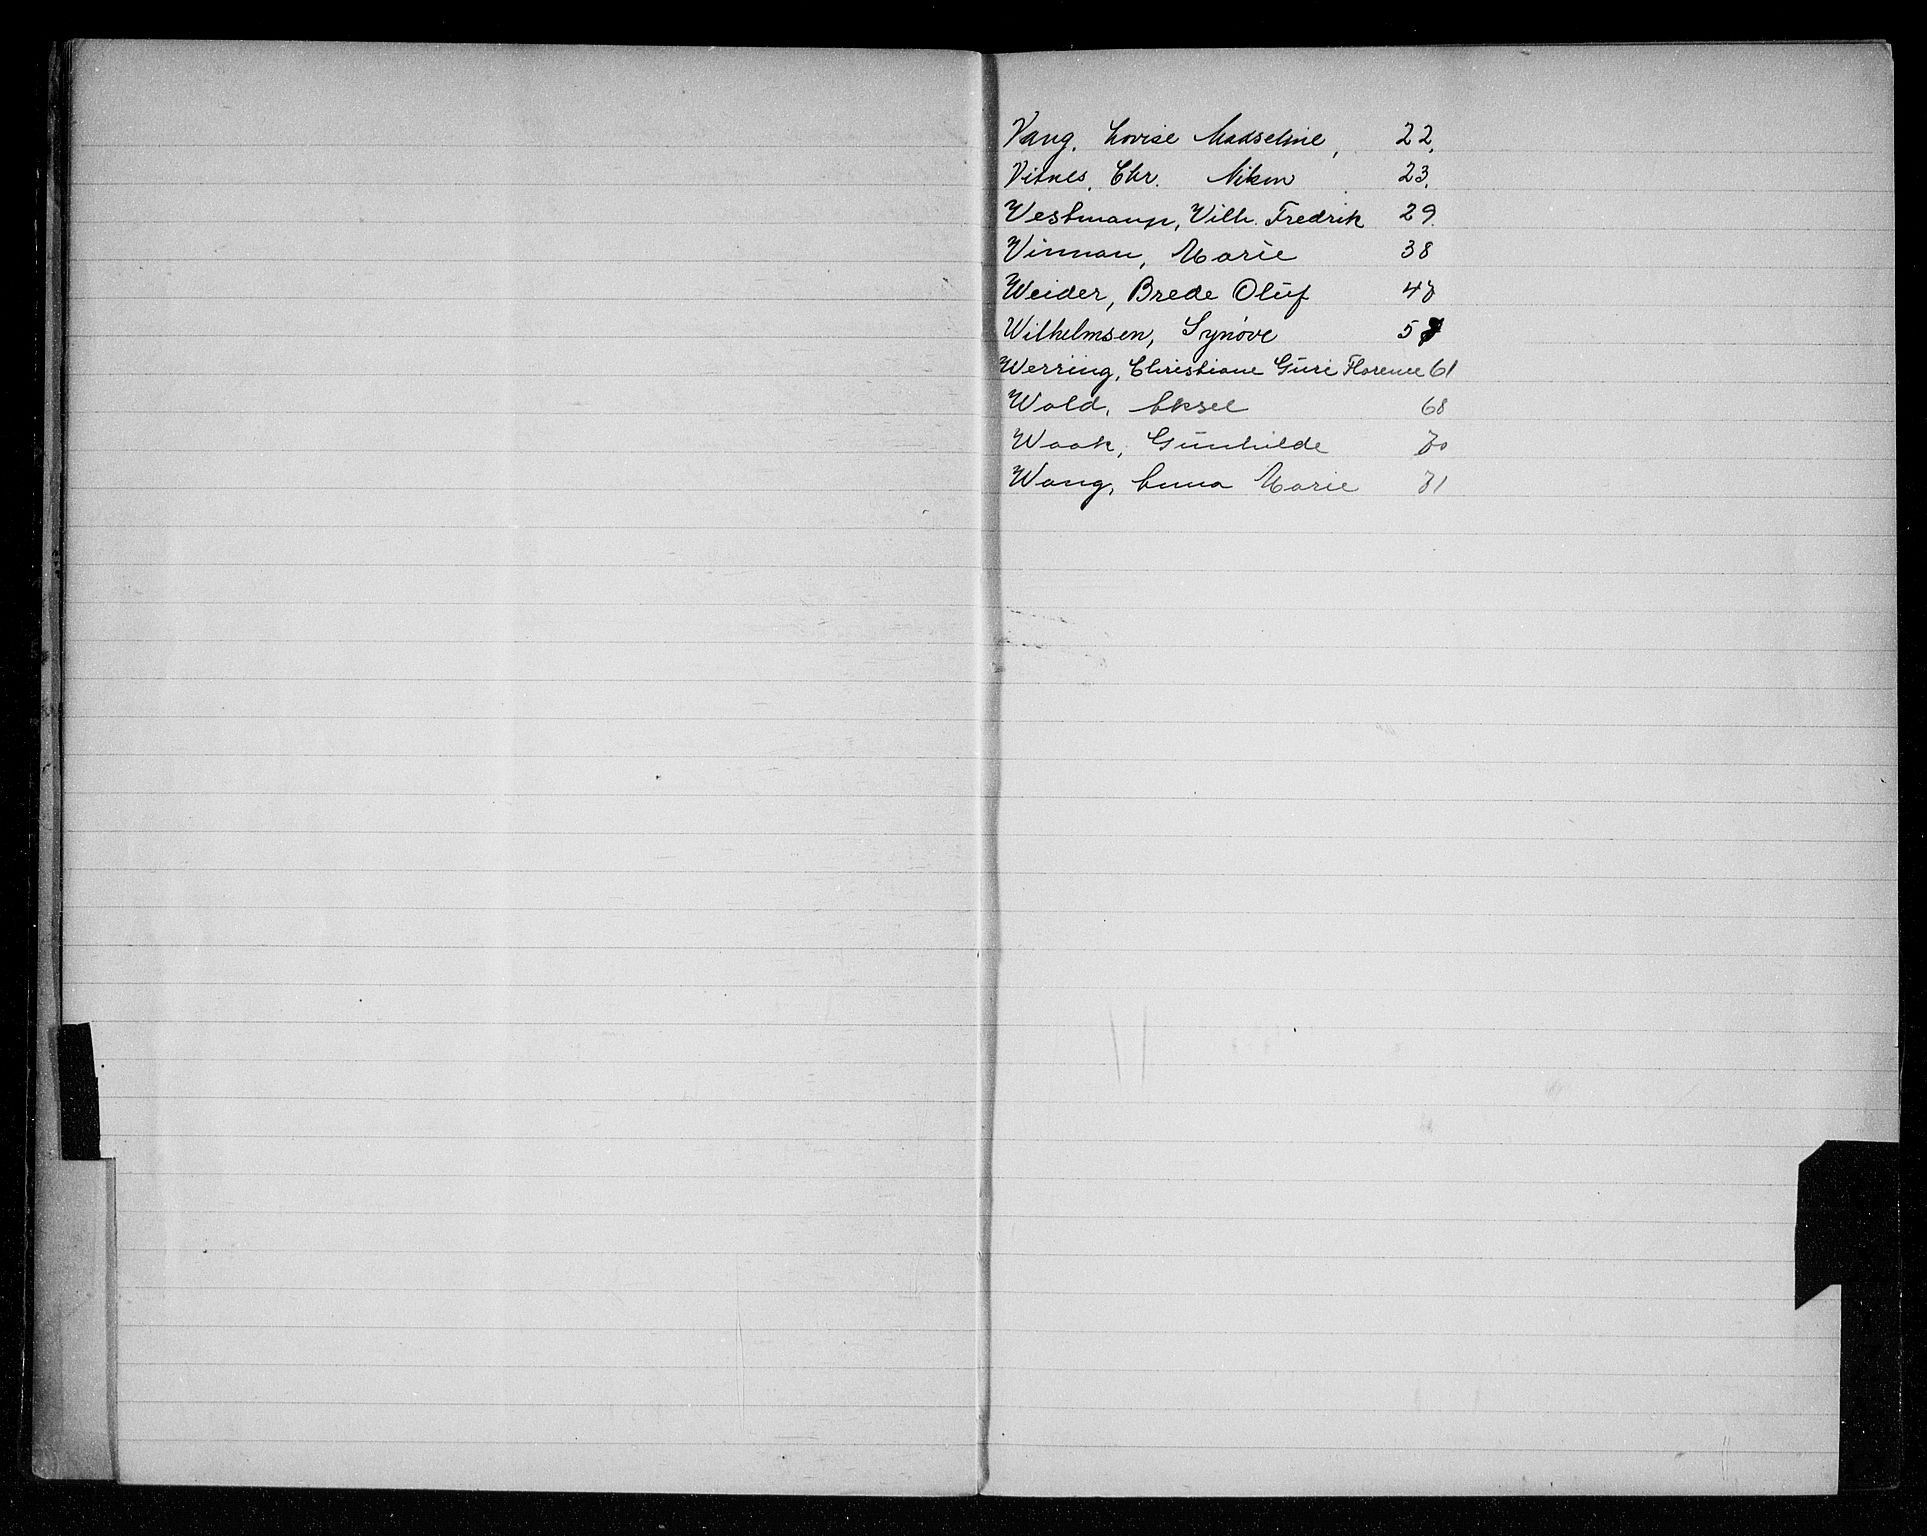 Vang, Lovise Madseline, 22.
Vitnes, Chr. 23.
Westmann, Vilh. Fredrik 29.
Vinnan, Marie 38
Weider, Brede Oluf 47
Wilhelmsen, Synøve 57
Werring, Christiane Guri Florence 61
Wold, Aksel 68
Waak, Gunhilde 70
Wang, Anna Marie 71